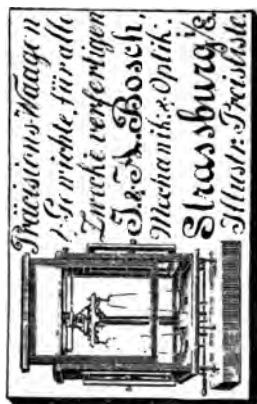 Präcisions-Waagen
& Gewichte für alle
Zwecke verfertigen
J. & A. Bosch,
Mechanik: & Optik:
Strassburg i/E.
Illustr: Preisliste.